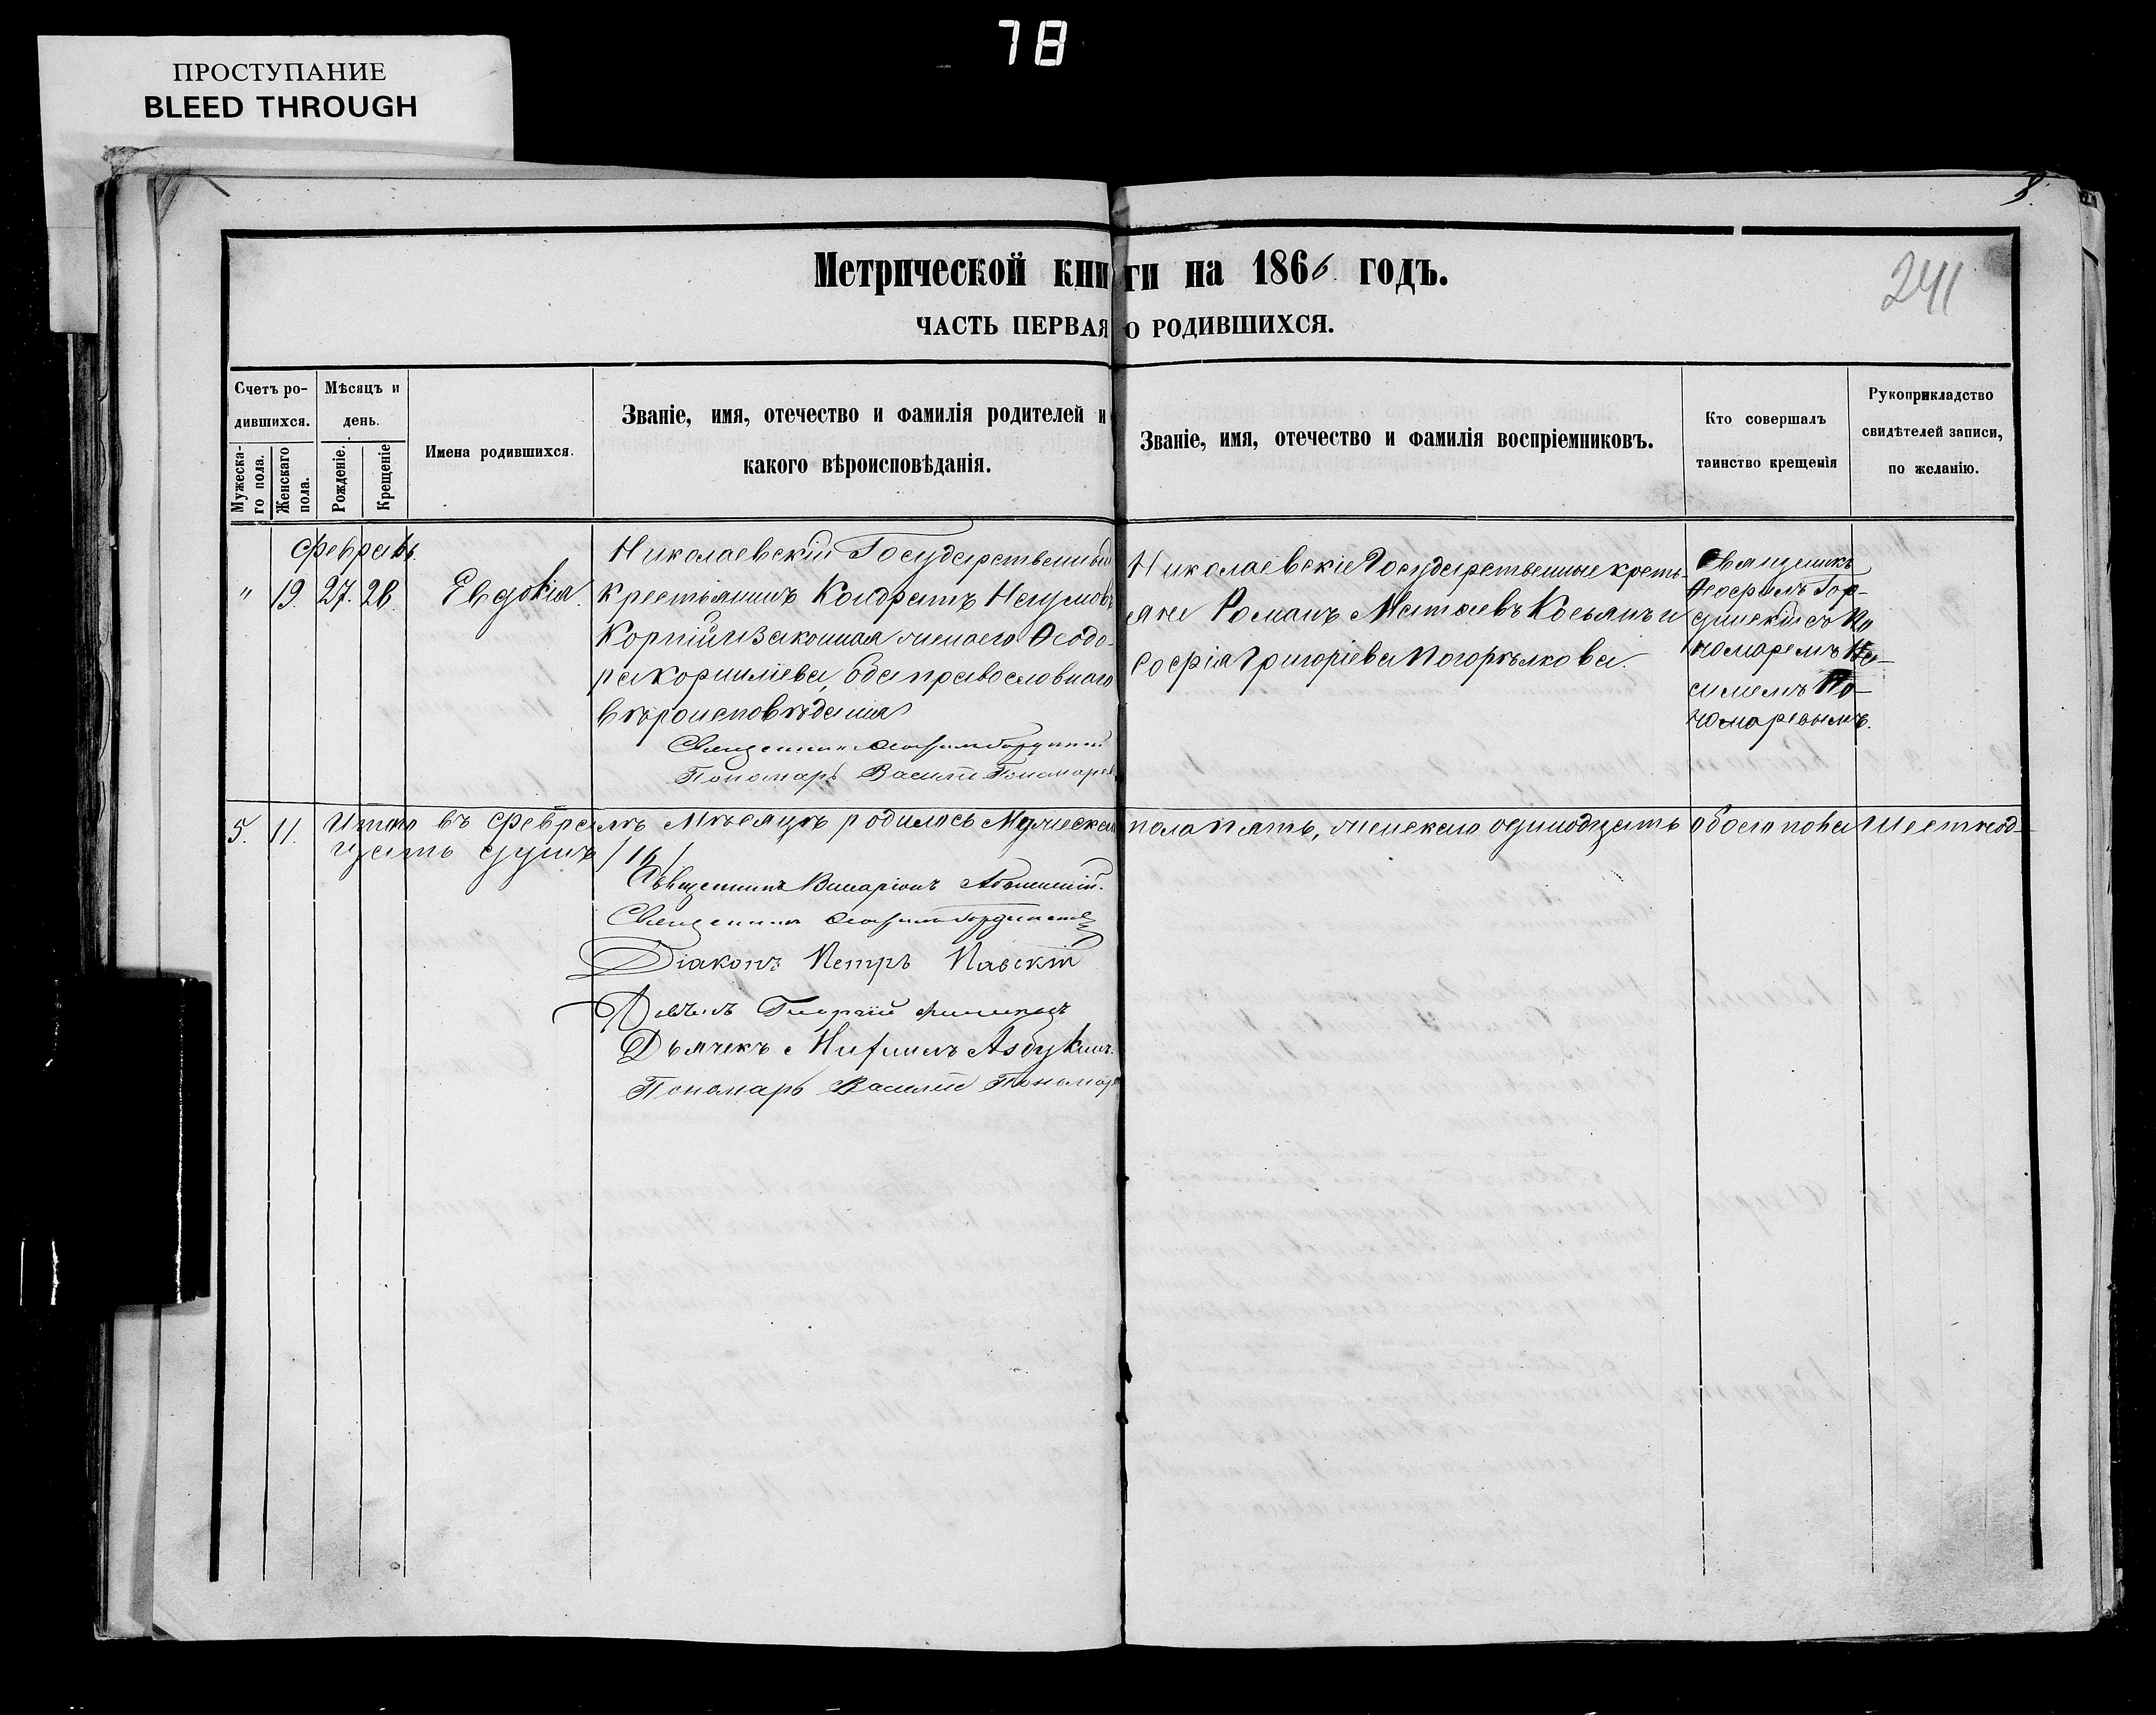 78
ПРОСТУПАНИЕ
BLEED THROUGH
8.
Метрической книги на 1866 годъ.
241
ЧАСТЬ ПЕРВАЯ О РОДИВШИХСЯ.
Счетъ ро-
дившихся.
Мужеска-
го пола.
Женскаго
пола.
Мѣсяцъ и
день.
Рожденіе.
Крещеніе
Имена родившихся.
Званіе, имя, отечество и фамилія родителей и
какого вѣроисповѣданія.
Званіе, имя, отечество и фамилія воспріемниковъ.
Кто совершалъ
таинство крещенія
Рукоприкладство
свидѣтелей записи,
по желанію.
Февраль
" 19. 27. 28. Евдокія.
Николаевскій Государственный
крестьянинъ Кондратъ Наумовъ
Корнійизаконная жена его Ѳеодо-
ра Корниліева, оба православнаго
вѣроисповѣданія
Священникъ
Пономарь Василій Пономарев
Николаевскіе Государственные кресть-
яне Романъ Матѳеевъ Косьянъ и
Софія Григоріева Погорѣлкова.
Священникъ
Ѳеофилъ Гор-
динскій съ По
номаремъ Ва-
силіемъ По-
номаревымъ.
5. 11. Итого въ Февралѣ Мѣсяцѣ родилось Мужеска пола пять, женскаго одинадцать обоего пола Шестнад-
цать душъ /16/
Священникъ Иларіонъ
Священникъ
Діаконъ Петръ Павскій
Георгій
Дьячекъ Михаилъ Азбукинъ.
Пономарь Василій Пономар